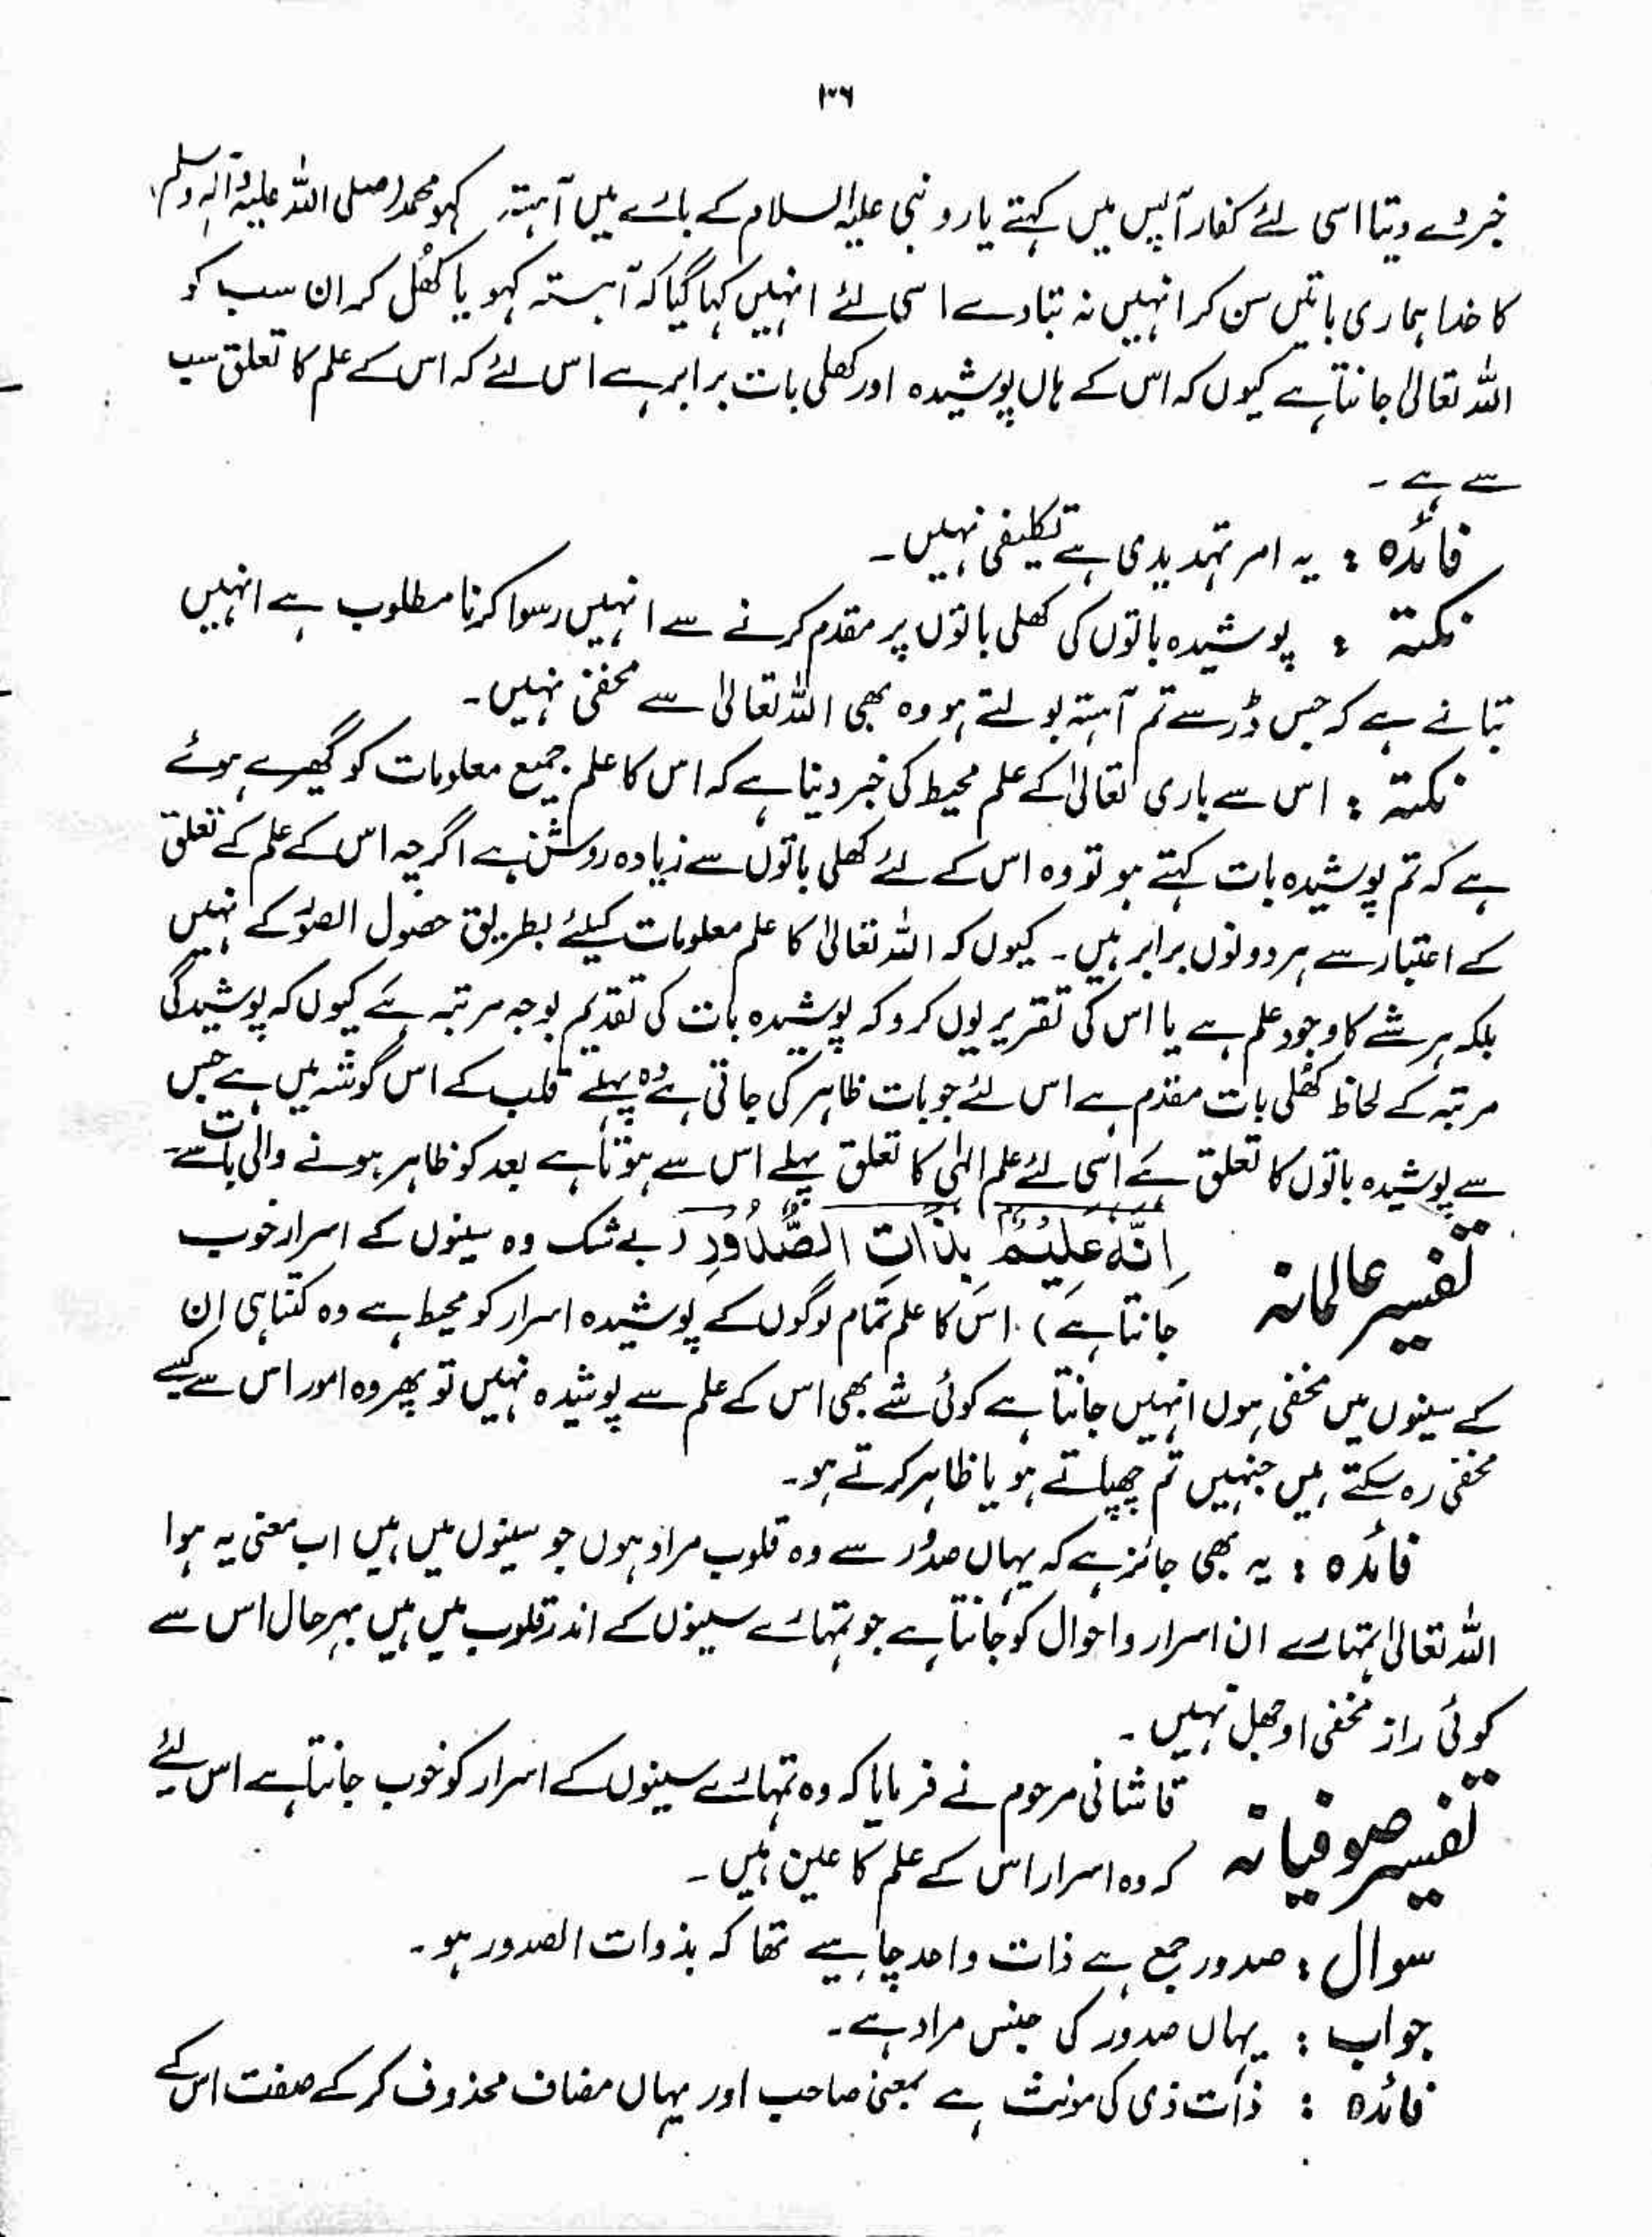 ۳۶
خبر دے دیتا اسی لئے کفار آپس میں کہتے یارو نبی علیہ السلام کے بارے میں آہستہ کہو محمد (صلی اللہ علیہ وآلہ وسلم)
کا خدا ہماری باتیں سن کر انہیں نہ بتا دے اسی لئے انہیں کہا گیا کہ آہستہ کہو یا کھُل کر ان سب کو
اللہ تعالیٰ جانتا ہے کیوں کہ اس کے ہاں پوشیدہ اور کھلی بات برابر ہے اس لئے کہ اس کے علم کا تعلق سب
سے ہے ۔
فائدہ : یہ امر تہدیدی ہے تکلیفی نہیں ۔
نکتہ : پوشیدہ باتوں کی کھلی باتوں پر مقدم کرنے سے انہیں رسوا کرنا مطلوب ہے انہیں
بتانے ہے کہ جس ڈر سے تم آہستہ بولتے ہو وہ بھی اللہ تعالیٰ سے مخفی نہیں ۔
نکتہ : اس سے باری تعالیٰ کے علم محیط کی خبر دینا ہے کہ اس کا علم جمیع معلومات کو گھیرے ہوئے
ہے کہ تم پوشیدہ بات کہتے ہو تو وہ اس کے لئے کھلی باتوں سے زیادہ روشن ہے اگرچہ اس کے علم کے تعلق
کے اعتبار سے ہر دونوں برابر ہیں ۔ کیوں کہ اللہ تعالیٰ کا علم معلومات کیلئے بطریق حصول الصور کے نہیں
بلکہ ہر شے کا وجود علم ہے یا اس کی تقریر یوں کرو کہ پوشیدہ بات کی تقدیم بوجہ مرتبہ ہے کیوں کہ پوشیدگی
مرتبہ کے لحاظ کھُلی بات مقدم ہے اس لئے جو بات ظاہر کی جاتی ہے وہ پہلے قلب کے اس گوشہ میں ہے جس
سے پوشیدہ باتوں کا تعلق ہے اسی لئے علم الہٰی کا تعلق پہلے اس سے ہوتا ہے بعد کو ظاہر ہونے والی بات سے ۔
تفسیر عالمانہ اِنَّهٗ عَلِیْمٌۢ بِذَاتِ الصُّدُوْرِ (بے شک وہ سینوں کے اسرار خوب
جانتا ہے ) ۔ اس کا علم تمام لوگوں کے پوشیدہ اسرار کو محیط ہے وہ کتنا ہی ان
کے سینوں میں مخفی ہوں انہیں جانتا ہے کوئی شے بھی اس کے علم سے پوشیدہ نہیں تو پھر وہ امور اس سے کیسے
مخفی رہ سکتے ہیں جنہیں تم چھپاتے ہو یا ظاہر کرتے ہو ۔
فائدہ : یہ بھی جائز ہے کہ یہاں صدُور سے وہ قلوب مراد ہوں جو سینوں میں ہیں اب معنی یہ ہوا
اللہ تعالیٰ تمہارے ان اسرار و احوال کو جانتا ہے جو تمہارے سینوں کے اندر قلوب میں ہیں بہرحال اس سے
کوئی راز مخفی اوجھل نہیں ۔
تفسیر صوفیانہ قاشانی مرحوم نے فرمایا کہ وہ تمہارے سینوں کے اسرار کو خوب جانتا ہے اس لئے
کہ وہ اسرار اس کے علم کا عین ہیں ۔
سوال : صدور جمع ہے ذات واحد چاہیے تھا کہ بذوات الصدور ہو ۔
جواب : یہاں صدور کی جنس مراد ہے ۔
فائدہ : ذات ذی کی مونث ہے بمعنیٰ صاحب اور یہاں مضاف محذوف کر کے صفت اس کے